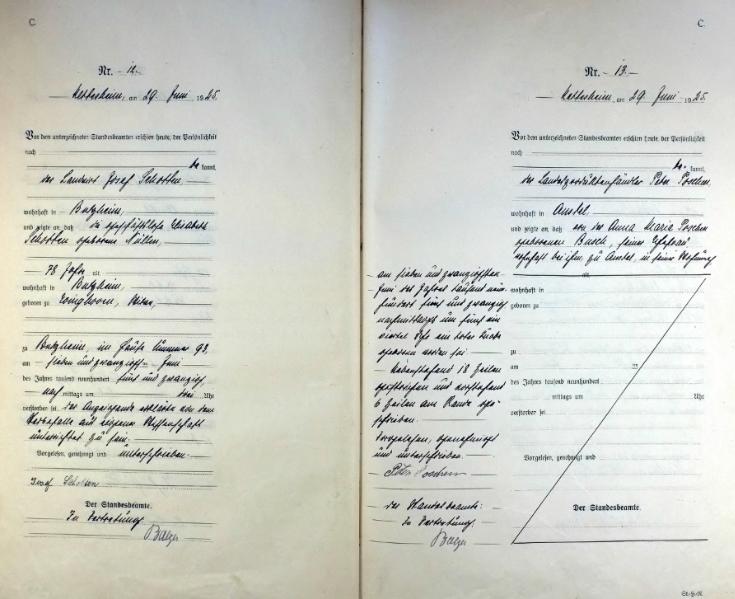 C.
Nr. 12.
Kettenheim, am 29. Juni 1925.
Vor dem unterzeichneten Standesbeamten erschien heute, der Persönlichkeit
nach
be kannt,
der Landwirt Josef Schotten,
wohnhaft in Butzheim,
und zeigte an, daß die geschäftslose Elisabeth
Schotten geborene Nüllen,
78 Jahre alt,
wohnhaft in Butzheim,
geboren zu
zu Butzheim, im Hause Nummer 93,
am sieben und zwanzigsten Juni
des Jahres tausend neunhundert fünf und zwanzig
nach mittags um drei Uhr
verstorben sei. Der Anzeigende erklärte von dem
Sterbefalle aus eigener Wissenschaft
unterrichtet zu sein.
Vorgelesen, genehmigt und unterschrieben.
Josef Schotten
Der Standesbeamte.
In Vertretung
C.
Nr. 13.
am 29. Juni 1925.
Vor dem unterzeichneten Standesbeamten erschien heute, der Persönlichkeit
nach
be kannt,
der Landesproduktenhändler Peter Poschen,
wohnhaft in Anstel,
und zeigte an, daß von der Anna Maria Poschen
geborenen Busch, seiner Ehefrau
wohnhaft bei ihm, zu Anstel, in seiner Wohnung
alt,
wohnhaft in
geboren zu
zu
am ten
des Jahres tausend neunhundert
mittags um Uhr
verstorben sei.
Vorgelesen, genehmigt und
Der Standesbeamte.
am sieben und zwanzigsten
Juni des Jahres tausend neun-
hundert fünf und zwanzig
nachmittags um fünf ein
viertel Uhr ein totes Kind
geboren worden sei
Nebenstehend 18 Zeilen
gestrichen und vorstehend
6 Zeilen am Rande ge-
schrieben.
Vorgelesen, genehmigt
und unterschrieben.
Peter Poschen
Der Standesbeamte:
In Vertretung.